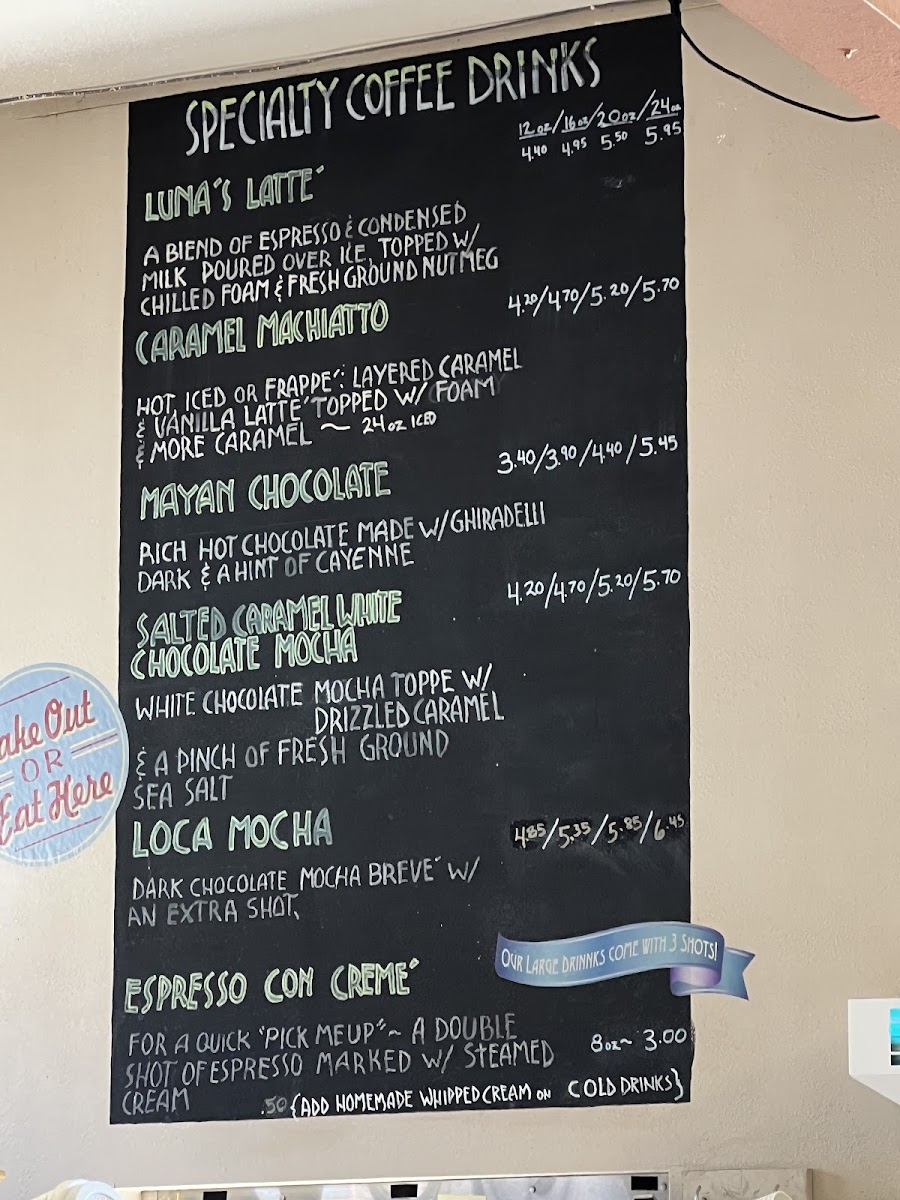 SPECIALTY COFFEE DRINKS
12 oz/16 oz/20 oz/24 oz
4.40 4.95 5.50 5.95
LUNA'S LATTE'
A BLEND OF ESPRESSO & CONDENSED
MILK POURED OVER ICE, TOPPED W/
CHILLED FOAM & FRESH GROUND NUTMEG
4.20/4.70/5.20/5.70
CARAMEL MACHIATTO
HOT, ICED OR FRAPPE': LAYERED CARAMEL
& VANILLA LATTE' TOPPED W/ FOAM
& MORE CARAMEL ~ 24 oz ICED
3.40/3.90/4.40/5.45
MAYAN CHOCOLATE
RICH HOT CHOCOLATE MADE W/ GHIRADELLI
DARK & A HINT OF CAYENNE
4.20/4.70/5.20/5.70
SALTED CARAMEL WHITE
CHOCOLATE MOCHA
WHITE CHOCOLATE MOCHA TOPPE W/
DRIZZLED CARAMEL
& A PINCH OF FRESH GROUND
SEA SALT
LOCA MOCHA
4.85/5.35/5.85/6.45
DARK CHOCOLATE MOCHA BREVE' W/
AN EXTRA SHOT.
OUR LARGE DRINNKS COME WITH 3 SHOTS!
ESPRESSO CON CREME'
FOR A QUICK "PICK ME UP" ~ A DOUBLE
SHOT OF ESPRESSO MARKED W/ STEAMED
CREAM
8 oz ~ 3.00
.50 {ADD HOMEMADE WHIPPED CREAM ON COLD DRINKS}
ake Out
OR
Eat Here